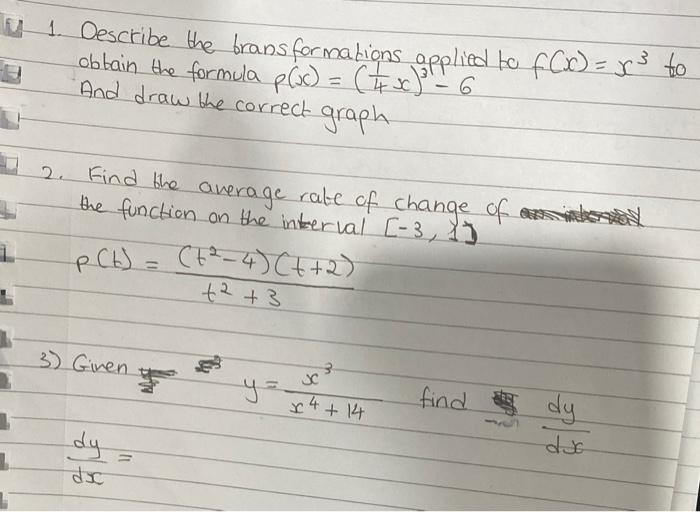 1. Describe the transformations applied to f(x) = x³ to
obtain the formula p(x) = (1/4 x)³ - 6
And draw the correct graph
2. Find the average rate of change of
the function on the interval [-3, 1]
p(t) = (t² - 4)(t + 2) / t² + 3
3) Given y = x³ / x⁴ + 14 find dy/dx
dy/dx =